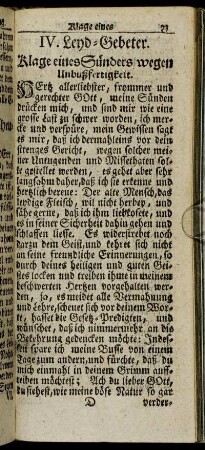 Klage eines 73
IV. Leyd-Gebeter.
Klage eines Sünders wegen
Unbußfertigkeit.
HErtz allerliebster, frommer und
gerechter GOtt, meine Sünden
drücken mich, und sind mir wie eine
grosse Last zu schwer worden, ich mer-
cke und verspüre, mein Gewissen sagt
es mir, daß ich dermahleins vor dein
strenges Gericht, wegen solcher mei-
ner Untugenden und Missethaten sol-
le gestellet werden, es gehet aber sehr
langsam daher, daß ich sie erkenne und
hertzlich bereue: Der alte Mensch, das
leydige Fleisch, wil nicht herbey, und
sähe gerne, daß ich ihm liebkosete, und
es in seiner Sicherheit dahin gehen und
schaffen liesse. Es widerstrebt noch
darzu dem Geist, und kehret sich nicht
an seine freundliche Erinnerungen, so
durch deines heiligen und guten Gei-
stes locken und treiben ihme in meinem
beschwerten Hertzen vorgehalten wer-
den, so, es meidet alle Vermahnung
und Lehre, scheuet sich vor deinem Wor-
te, hasset die Gesetz-Predigten, und
wünschet, daß ich nimmermehr an die
Bekehrung gedencken möchte: Indes-
sen spare ich meine Busse von einem
Tage zum andern, und fürchte, daß du
mich einmahl in deinem Grimm auff-
reiben möchtest; Ach du lieber GOtt,
du siehest, wie meine böse Natur so gar
D verder-